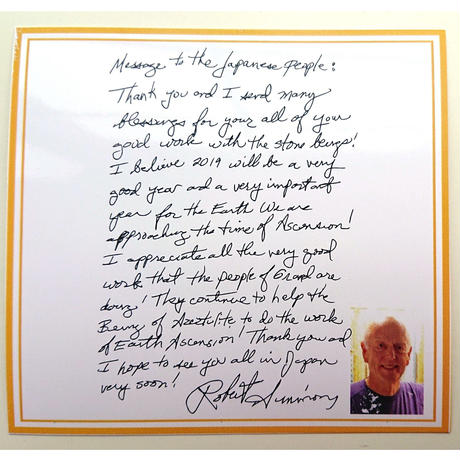 Message to the Japanese People:
Thank you and I send many
blessings for your all of your
good work with the stone beings!
I believe 2019 will be a very
good year ad a very important
year for the Earth We are
approaching the time of Ascension!
I appreciate all the very good
work that the people of are
doing! They continue to help the
Being of Azeztulite to do the work
of Earth Ascension! Thank you ad
I hope to see you all in Japan
very soon!
Robert Simmons